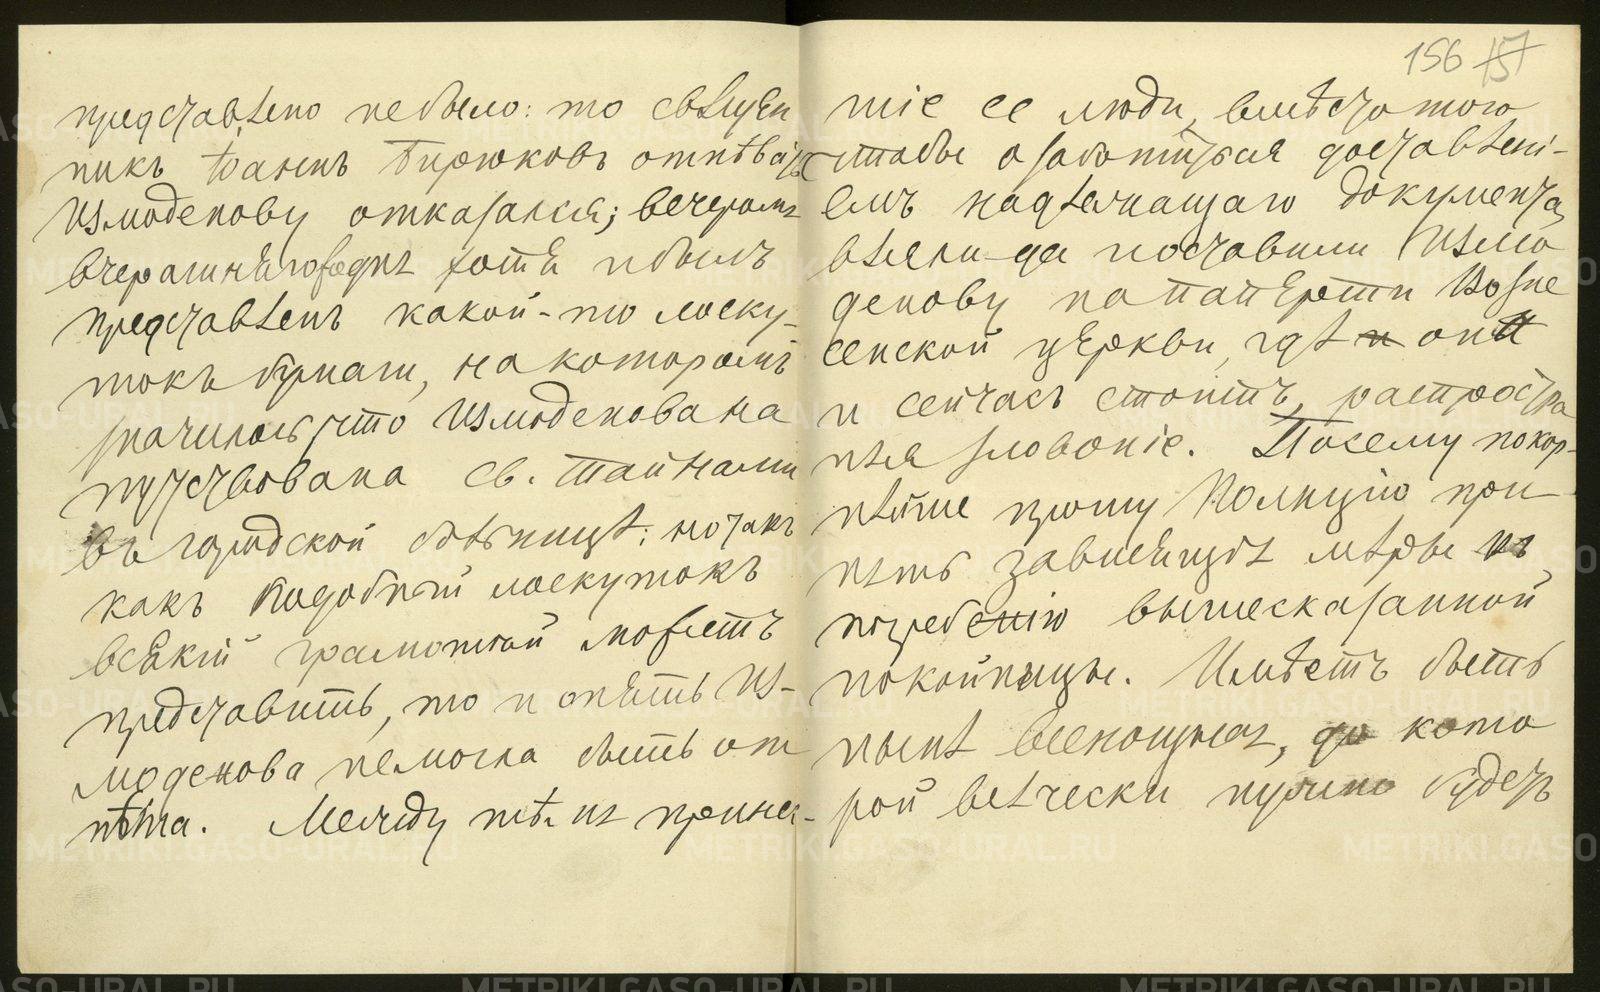 представлено не было: то священ
никъ Іоаннъ Бирюковъ отпѣвать
Измоденову отказался; вечеромъ
вчерашняго дня хотя и былъ
представленъ какой-то лоску-
токъ бумаги, на которомъ
значилось, что Измоденова на
путствована св. тайнами
въ городской больницѣ; но такъ
какъ подобный лоскутокъ
всякій грамотный можетъ
представить, то и опять Из-
моденова не могла быть от
пѣта. Между тѣмъ принес-
156 157
шіе ее люди, вмѣсто того
чтобы озаботиться доставлені-
емъ надлежащаго документа,
взяли да поставили Измо
денову на паперти Возне
сенской церкви, гдѣ она
и сейчасъ стоитъ, распростра
няя зловоніе. Посему покор-
нѣйше прошу Полицію при-
нять зависящія мѣры къ
погребенію вышесказанной
покойницы. Имѣетъ быть
нынѣ всенощная, до кото
рой всячески нужно будетъ
METRIKI.GASO-URAL.RU